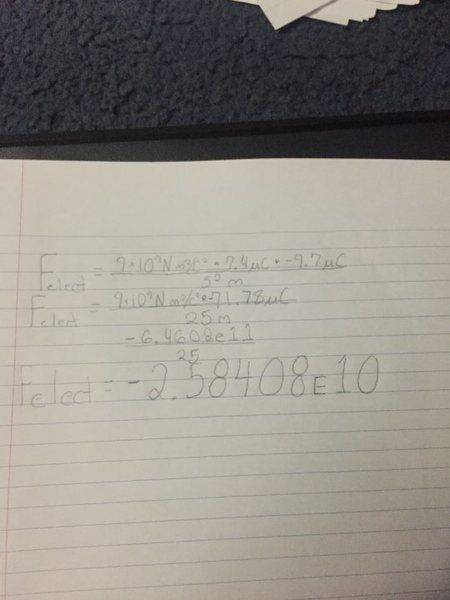 F elect = 9*10⁹N m²/c² • 7.4µC • -9.7µC
5² m
F elect = 9*10⁹N m²/c² • -71.78µC
25 m
-6.4602e11
25
F elect = -2.58408E10